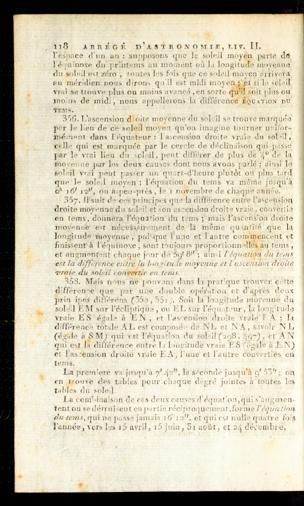 118 ABRÉGÉ D'ASTRONOMIE, LIV. II.
l'espace d'un an : supposons que le soleil moyen parte de
l'équinoxe du printems au moment où la longitude moyenne
du soleil est zéro, toutes les fois que ce soleil moyen arrivera
au méridien nous dirons qu'il est midi moyen ; et si le soleil
vrai se trouve plus ou moins avancé, en sorte qu'il soit plus ou
moins de midi, nous appellerons la différence ÉQUATION DU
TEMS.
356. L'ascension droite moyenne du soleil se trouve marquée
par le lieu de ce soleil moyen qu'on imagine tourner unifor-
mément dans l'équateur : l'ascension droite vraie du soleil,
celle qui est marquée par le cercle de déclinaison qui passe
par le vrai lieu du soleil, peut différer de plus de 4° de la
moyenne par les deux causes dont nous avons parlé ; ainsi le
soleil vrai peut passer un quart-d'heure plutôt ou plus tard
que le soleil moyen ; l'équation du tems va même jusqu'à
0h 16' 12", ou à-peu-près, le 1 novembre de chaque année.
357. Il suit de ces principes que la différence entre l'ascension
droite moyenne du soleil et son ascension droite vraie, convertie
en tems, donnera l'équation du tems ; mais l'ascension droite
moyenne est nécessairement de la même quantité que la
longitude moyenne, puisque l'une et l'autre commencent et
finissent à l'équinoxe, sont toujours proportionnelles au tems,
et augmentent chaque jour de 59' 8" ; ainsi l'équation du tems
est la différence entre la longitude moyenne et l'ascension droite
vraie du soleil convertie en tems.
358. Mais nous ne pouvons dans la pratique trouver cette
différence que par une double opération et d'après deux
principes différens (350, 351). Soit la longitude moyenne du
soleil EM sur l'écliptique, ou EL sur l'équateur, la longitude
vraie ES égale à EN, et l'ascension droite vraie EA ; la
différence totale AL est composée de NL et NA, savoir NL
(égale à SM) qui est l'équation du soleil et AN
qui est la différence entre la longitude vraie ES (égale à EN)
et l'ascension droite vraie EA, l'une et l'autre converties en
tems.
La premiere va jusqu'à 7' 42", la seconde jusqu'à 9' 53" ; on
en trouve des tables pour chaque degré jointes à toutes les
tables du soleil.
La combinaison de ces deux causes d'équation, qui s'augmen-
tent ou se détruisent en partie réciproquement, forme l'équation
du tems, qui ne passe jamais 16' 12", et qui est nulle quatre fois
l'année, vers les 15 avril, 15 juin, 31 août, et 24 décembre.